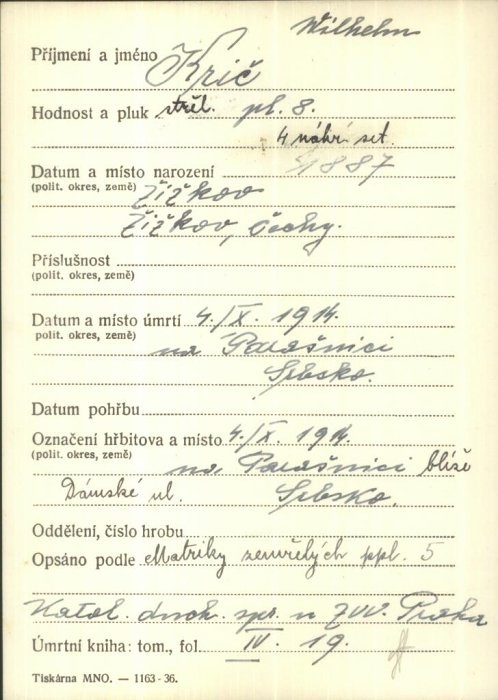 Wilhelm
Příjmení a jméno Krič
Hodnost a pluk střel. pl. 8.
4 náhr. set.
Datum a místo narození 1887
(polit. okres, země) Žižkov
Žižkov, Čechy.
Příslušnost
(polit. okres, země)
Datum a místo úmrtí 4./IX. 1914.
polit. okres, země)
na Parašnici
Srbsko.
Datum pohřbu
Označení hřbitova a místo 4./IX. 1914.
(polit. okres, země)
na Parašnici blíže
Dámské ul. Srbsko.
Oddělení, číslo hrobu
Opsáno podle Matriky zemřelých ppl. 5
Katol. duch. spr. u ZVV. Praha
Úmrtní kniha: tom., fol. IV. 19.
Tiskárna MNO. — 1163-36.